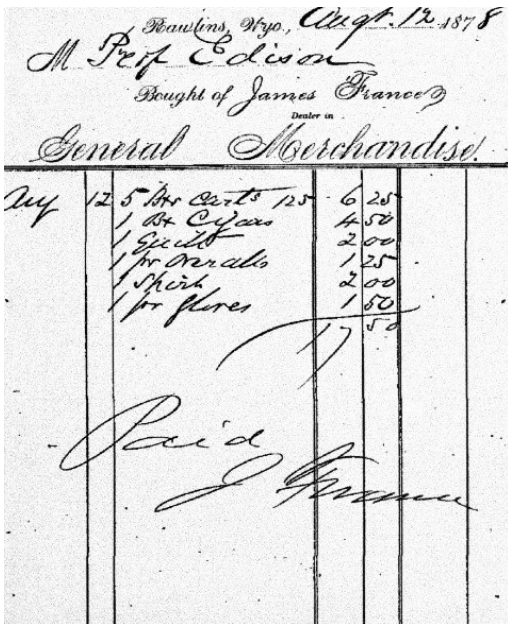 Rawlins, Wyo., Augt. 12 1878
M Prof Edison
Bought of James France
Dealer in
General Merchandise.
Aug 12 5 Bxs Carts 125 6 25
1 Bx Cigars 4 50
1 Quilt 2 00
1 pr Overalls 1 25
1 Shirt 2 00
1 pr Gloves 1 50
17 50
Paid
J France